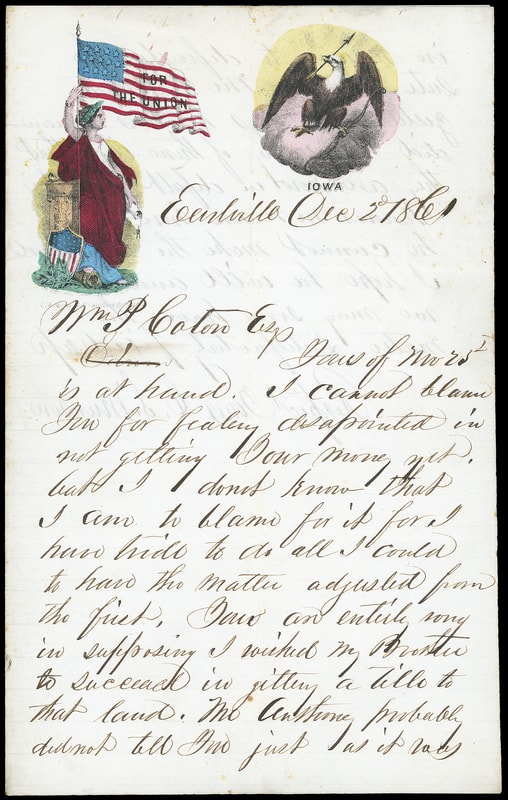 FOR
THE UNION
IOWA
Earlville Dec 2d 1861
Wm P Coton Esq
Yours of Nov 25t
is at hand. I cannot blame
You for fealing disapointed in
not getting Your money yet.
but I donot know that
I am to blame for it for I
have tride to do all I could
to have the matter adjusted from
the first. You are entirly rong
in supposing I wished my Brother
to succeed in gitting a title to
that land. Mr Anthony probably
did not tell You just as it was